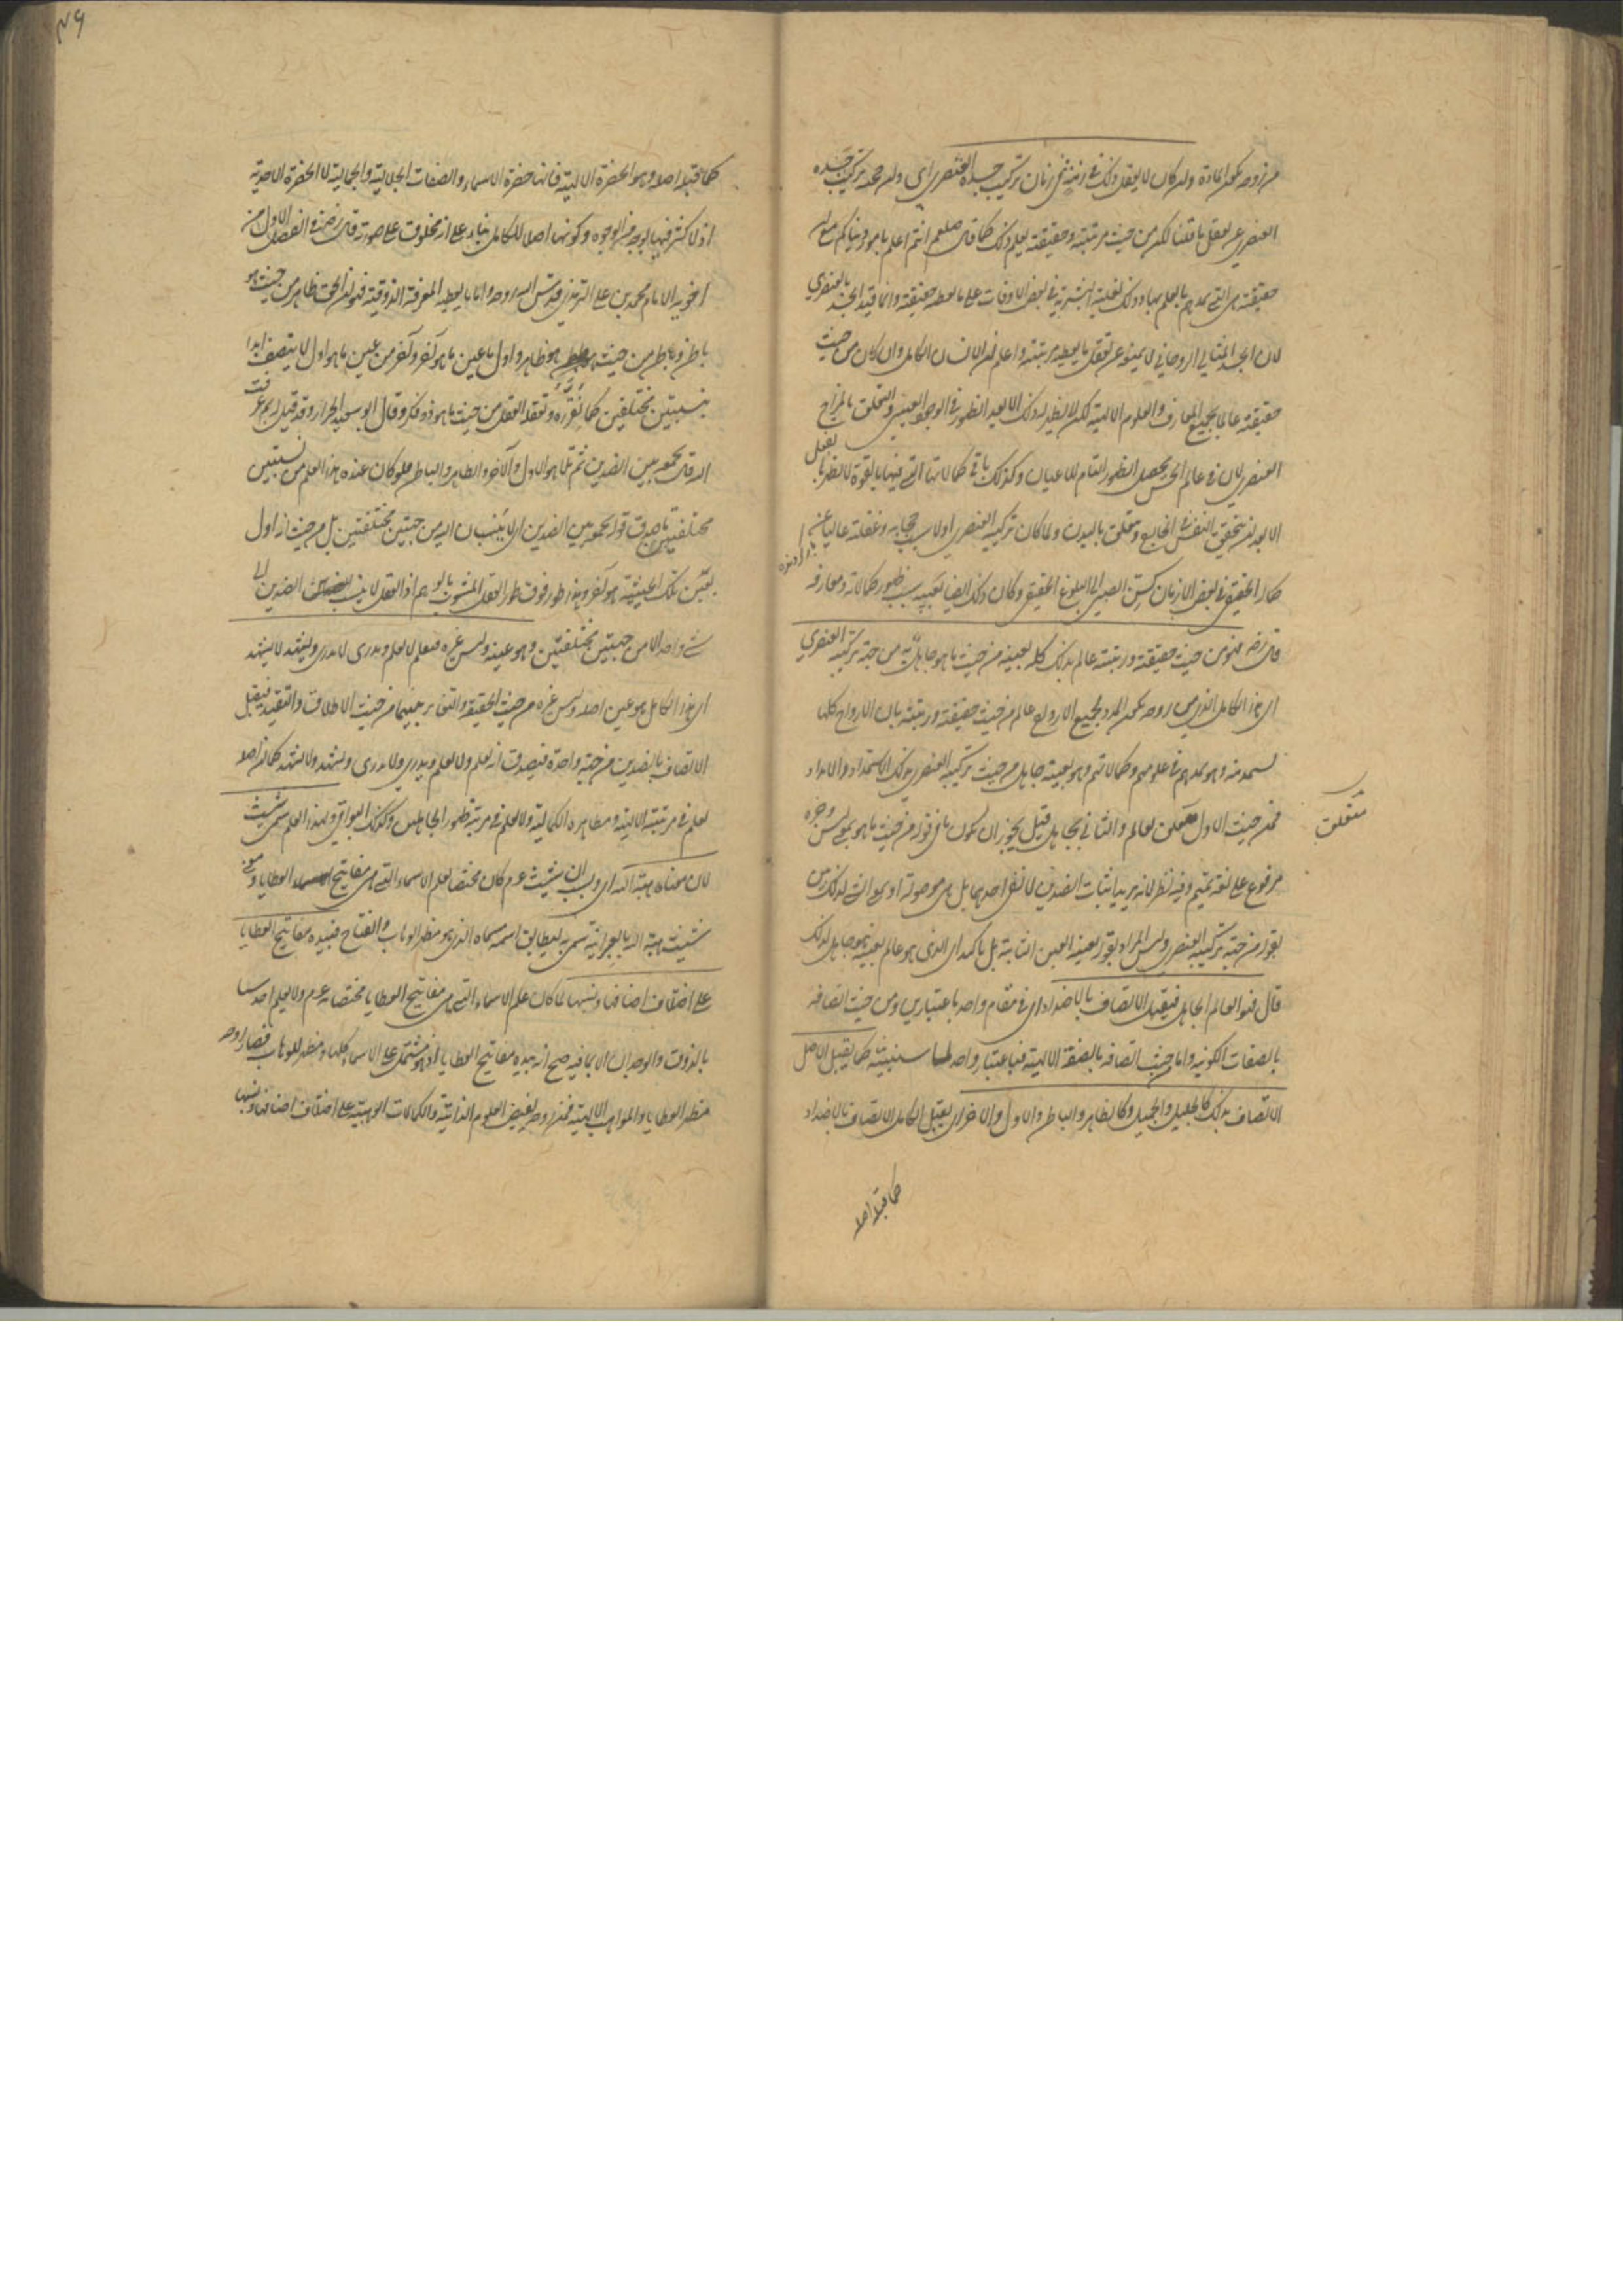 من روحه تكون المادة وان كان لا يعقل ذلك في زمان تركيب جسده العنصري اي وان حجبه تركيب جسده
العنصري عن تعقل ما قلنا لكن من حيث مرتبته وحقيقته يعلم ذلك كما قال صلعم انتم اعلم بامور دنياكم مع ان
حقيقته هي التي تمدهم بالعلم بها وذلك لغلبة البشرية في بعض الاوقات على ما يعطيه حقيقته وانما قيد الجسد بالعنصري
لان الجسد المثالي الروحاني لا يمنع عن تعقل ما يعطيه مرتبته واعلم ان الانسان الكامل وان كان من حيث
حقيقته عالما بجميع المعارف والعلوم الالهية لكن لا يظهر له ذلك الا بعد الظهور في الوجود العيني والتعلق بالمزاج
العنصري لان في عالم الحس يحصل الظهور التام للاعيان وكذلك باقي كمالاتها التي فيها بالقوة لا تظهر بالفعل
الا بعد ان يتحقق النفس في الخارج ويتعلق بالبدن ولما كان تركيبه العنصري اولا سبب حجابه وغفلته عاليا عن
كماله الحقيقي في بعض الازمان كسن الصبى الى البلوغ الحقيقي وكان ذلك ايضا بعينه سبب ظهور كمالاته ومعارفه
قال رضه فهو من حيث حقيقته ورتبته عالم بذلك كله بعينه من حيث ما هو جاهل به من جهة تركيبه العنصري
اي هذا الكامل الذي من روحه تكون المدد لجميع الارواح عالم من حيث حقيقته ورتبته بان الارواح كلها
تستمد منه وهو ممدهم في علومهم وكمالاتهم وهو بعينه جاهل من حيث تركيبه العنصري بذلك الاستمداد والامداد
فمن حيث الاول متعلق بعالم والثاني بجاهل قيل يجوز ان يكون ما في قوله من حيث ما هو بمعنى ليس وخبره
مرفوع على لغة تميم وفيه نظر لانه يريد اثبات الضدين لا نفي احدهما بل هي موصولة او بمعنى الشي لذلك بين
بقوله من جهة تركيبه العنصري وليس المراد بقوله بعينه العين الثابتة بل تاكيد اي الذي هو عالم بعينه هو جاهل لذلك
قال فهو العالم الجاهل فيقبل الاتصاف بالاضداد اي في مقام واحد باعتبارين ومن حيث اتصافه
بالصفات الكونية واما من حيث اتصافه بالصفة الالهية فباعتبار واحد كما سنبينه كما يقبل الاصل
الاتصاف بذلك كالجليل والجميل وكالظاهر والباطن والاول والاخر اي يقبل الكامل الاتصاف بالاضداد
كما قبله اصله
متعلق
كما قبله اصله وهو الحضرة الالهية فانها حضرة الاسماء والصفات الجلالية والجمالية لا الحضرة الاحدية
اذ لا كثرة فيها بوجه من الوجوه وكونها اصلا للكامل بناء على انه مخلوق على صورته قال رضه في الفصل الاول من
اجوبة الامام محمد بن علي الترمذي قدس الله روحه واما ما يعطيه المعرفة الذوقية فهو ان الحق ظاهر من حيث ما هو
باطن وباطن من حيث ما هو ظاهر واول من عين ما هو آخر وآخر من عين ما هو اول لا يتصف ابدا
بنسبتين مختلفتين كما نقرره وتعقله العقل من حيث ما هو ذو فكر وقال ابو سعيد الخراز وقد قيل له بم عرفت
الله قال بجمعه بين الضدين ثم تلا هو الاول والآخر والظاهر والباطن فلو كان عنده هذا العلم من نسبتين
مختلفتين ما صدق قوله بجمعه بين الضدين اي لا ينسبان اليه من جهتين مختلفتين بل من حيث انه اول
بعين تلك الحيثية هو آخر وهذا طور فوق طور العقل المشوب بالوهم اذ العقل لا ينسب الضدين الى
شي واحد الا من جهتين مختلفتين وهو عينه وليس غيره فيعلم لا يعلم ويدري لا يدري ويشهد لا يشهد
اي هذا الكامل هو عين اصله وليس غيره من حيث الحقيقة والتغاير بينهما من حيث الاطلاق والتقييد فيقبل
الاتصاف بالضدين من جهة واحدة فيصدق انه يعلم ولا يعلم ويدري ولا يدري ويشهد ولا يشهد كما ان اصله
يعلم في مرتبته الالهية ومظاهره الكمالية ولا يعلم في مرتبة ظهوره الجاهلين وكذلك البواقي وبهذا العلم سمى شيث
لان معناه هبة الله اي وبسبب ان شيث عم كان مختصا بعلم الاسماء التي هي مفاتيح العطايا ومعنى
شيث هبة الله بالعبرانية سمي به ليطابق اسمه مسماه الذي هو مظهر الوهاب والفتاح فبيده مفاتيح العطايا
على اختلاف اصنافها ونسبها لما كان علم الاسماء التي هي مفاتيح العطايا مختصا به عم ولا يعلم احد
بالذوق والوجدان الا بما فيه صح انه بيده مفاتيح العطايا اذ هو مشتمل على الاسماء كلها ومظهر للوهاب فصار روحه
مظهر العطايا والمواهب الالهية فمن روحه يفيض العلوم الذاتية والكمالات الوهبية على اختلاف اصنافها ونسبها